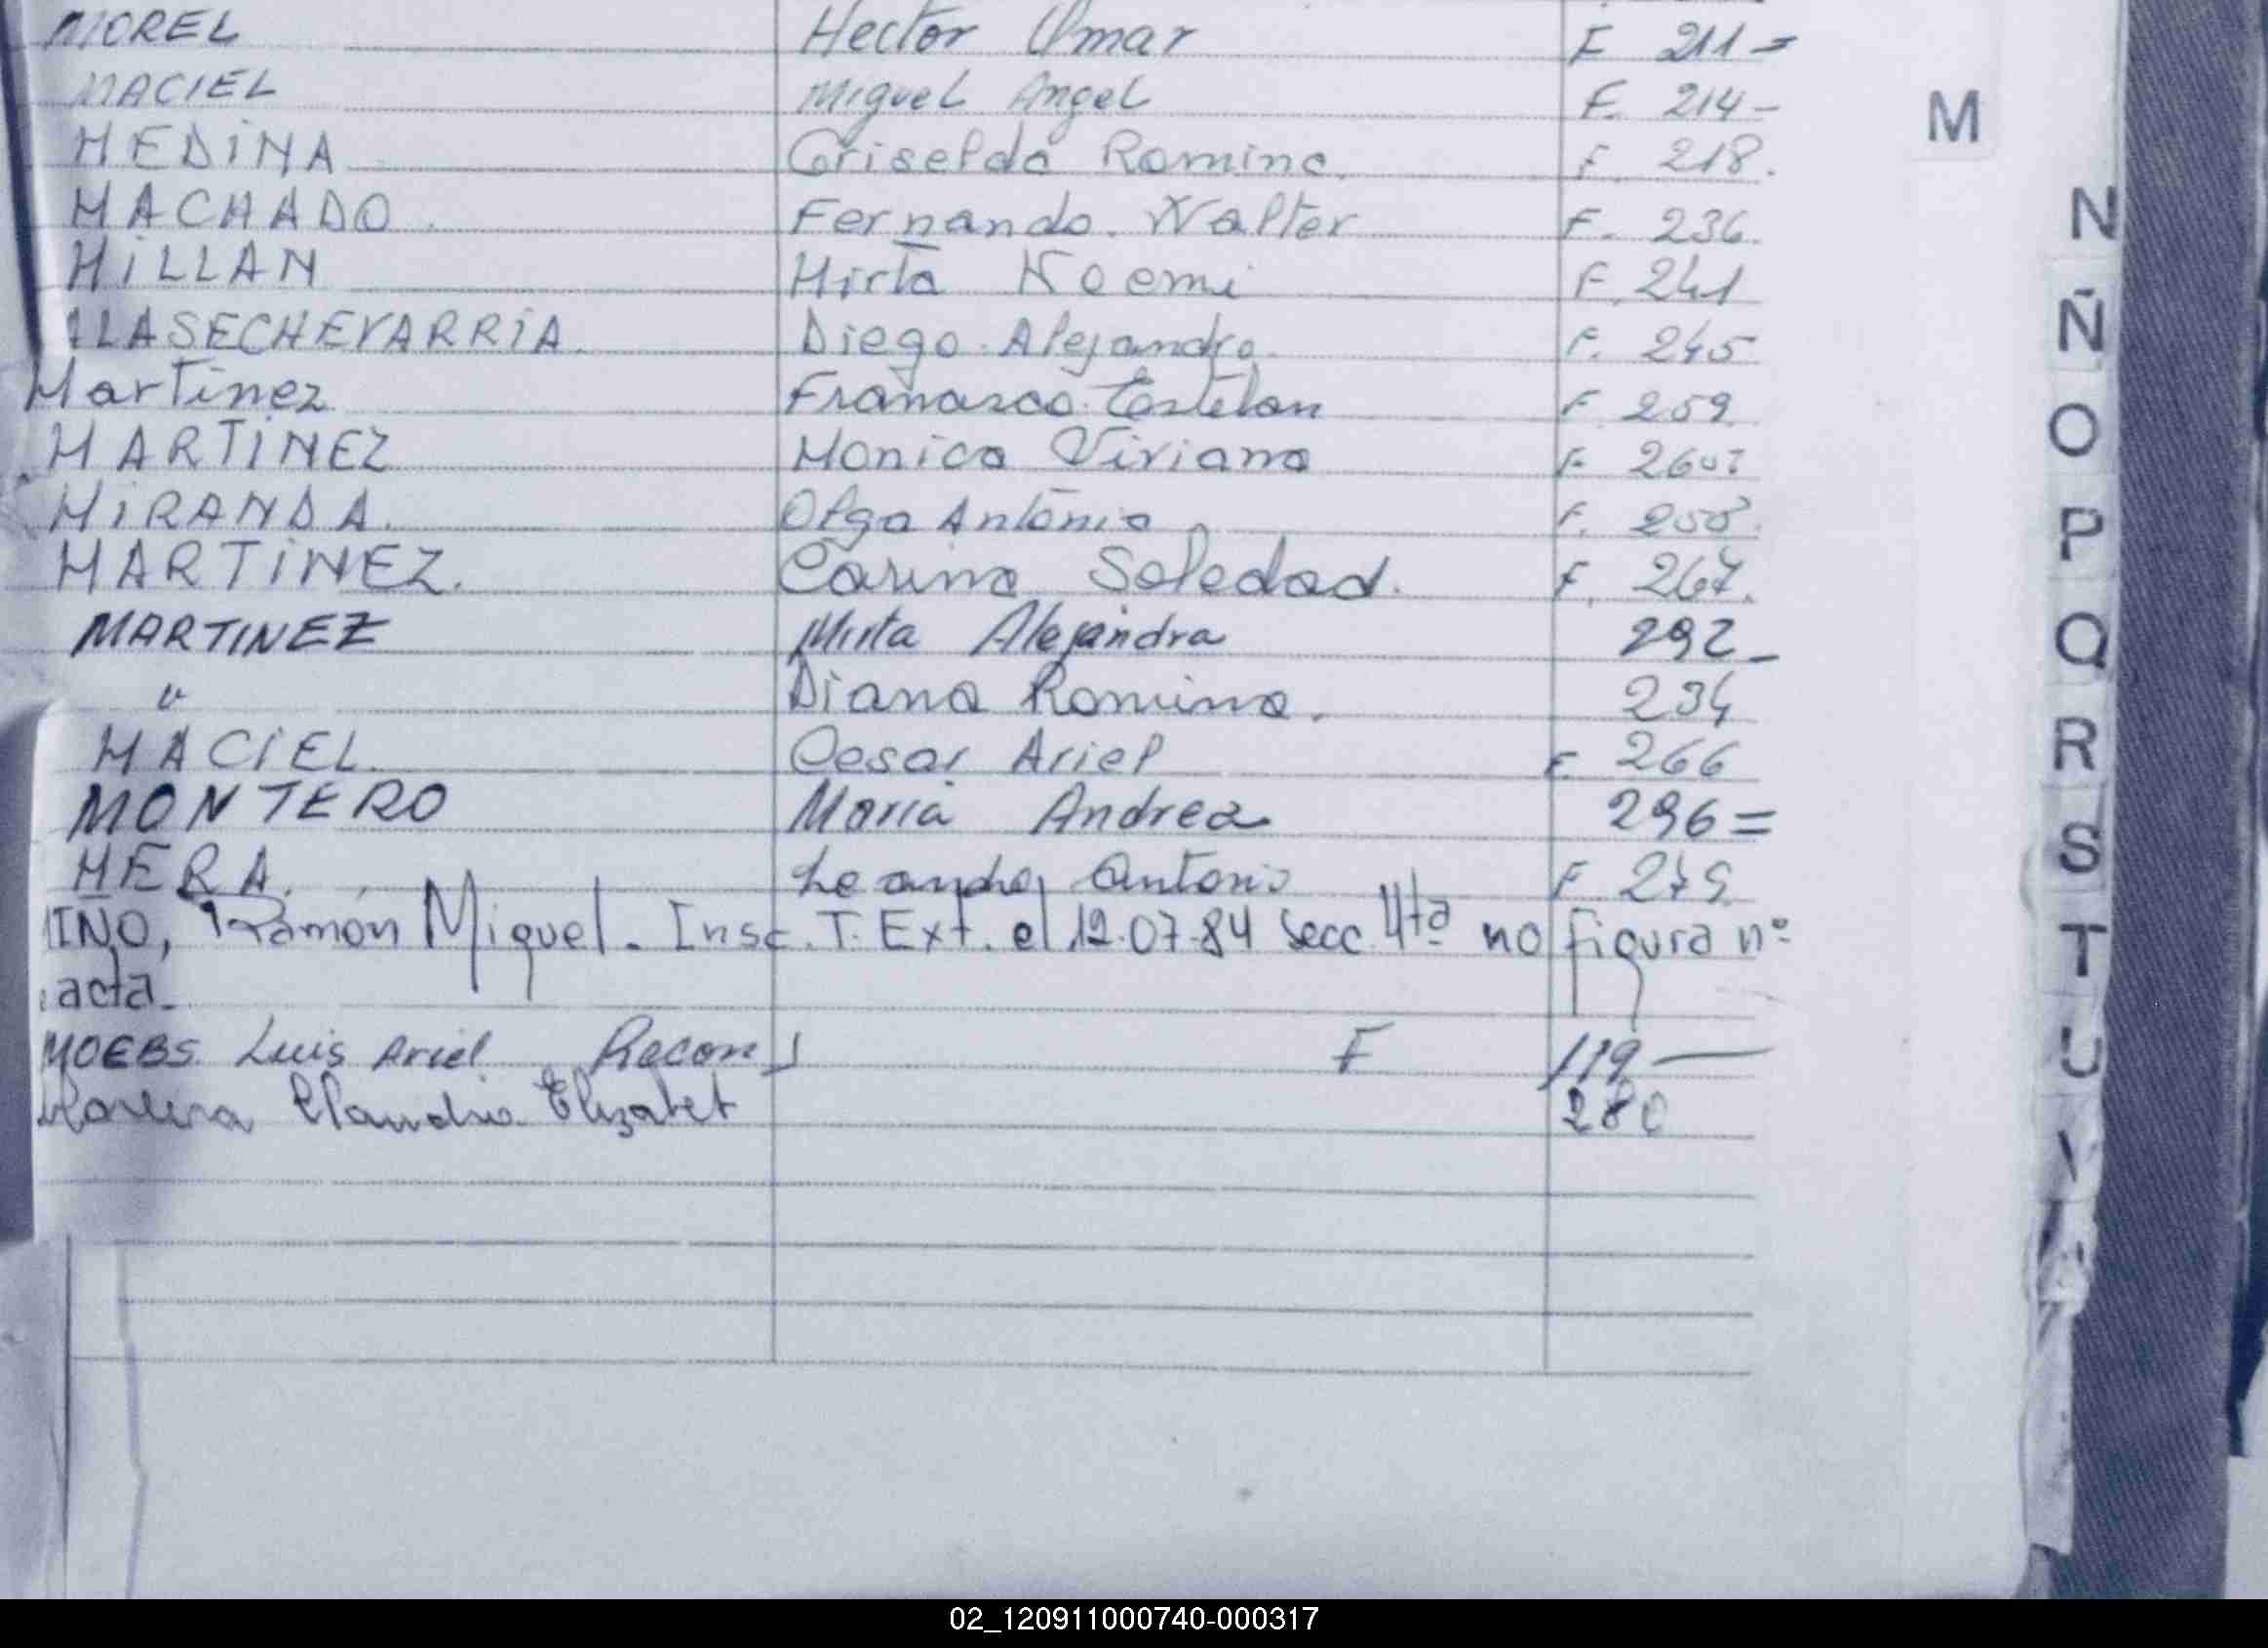 MOREL Hector Omar F 211=
MACIEL Miguel Angel F. 214-
MEDINA Griselda Romina. F. 218.
MACHADO. Fernando. Walter F. 236.
MILLAN Mirta Noemi F. 241
ALASECHEVARRIA. Diego Alejandro. F. 245
Martinez Francisco Esteban F 259
MARTINEZ Monica Viviana F
MIRANDA. Olga Antonia F.
MARTINEZ. Carina Soledad. F. 267.
MARTINEZ Mirta Alejandra 292_
" Diana Romina. 234
MACIEL. Cesar Ariel F. 266
MONTERO María Andrea 296=
MERA. Leandro Antonio F 275
IÑO, Ramón Miguel. Insc. T. Ext. el 12.07.84 Secc. 4ta no figura nº
acta_
MOEBS Luis Ariel Recon F 119—
Claudia Elizabet 280
M
N
Ñ
O
P
Q
R
S
T
U
V
02_120911000740-000317